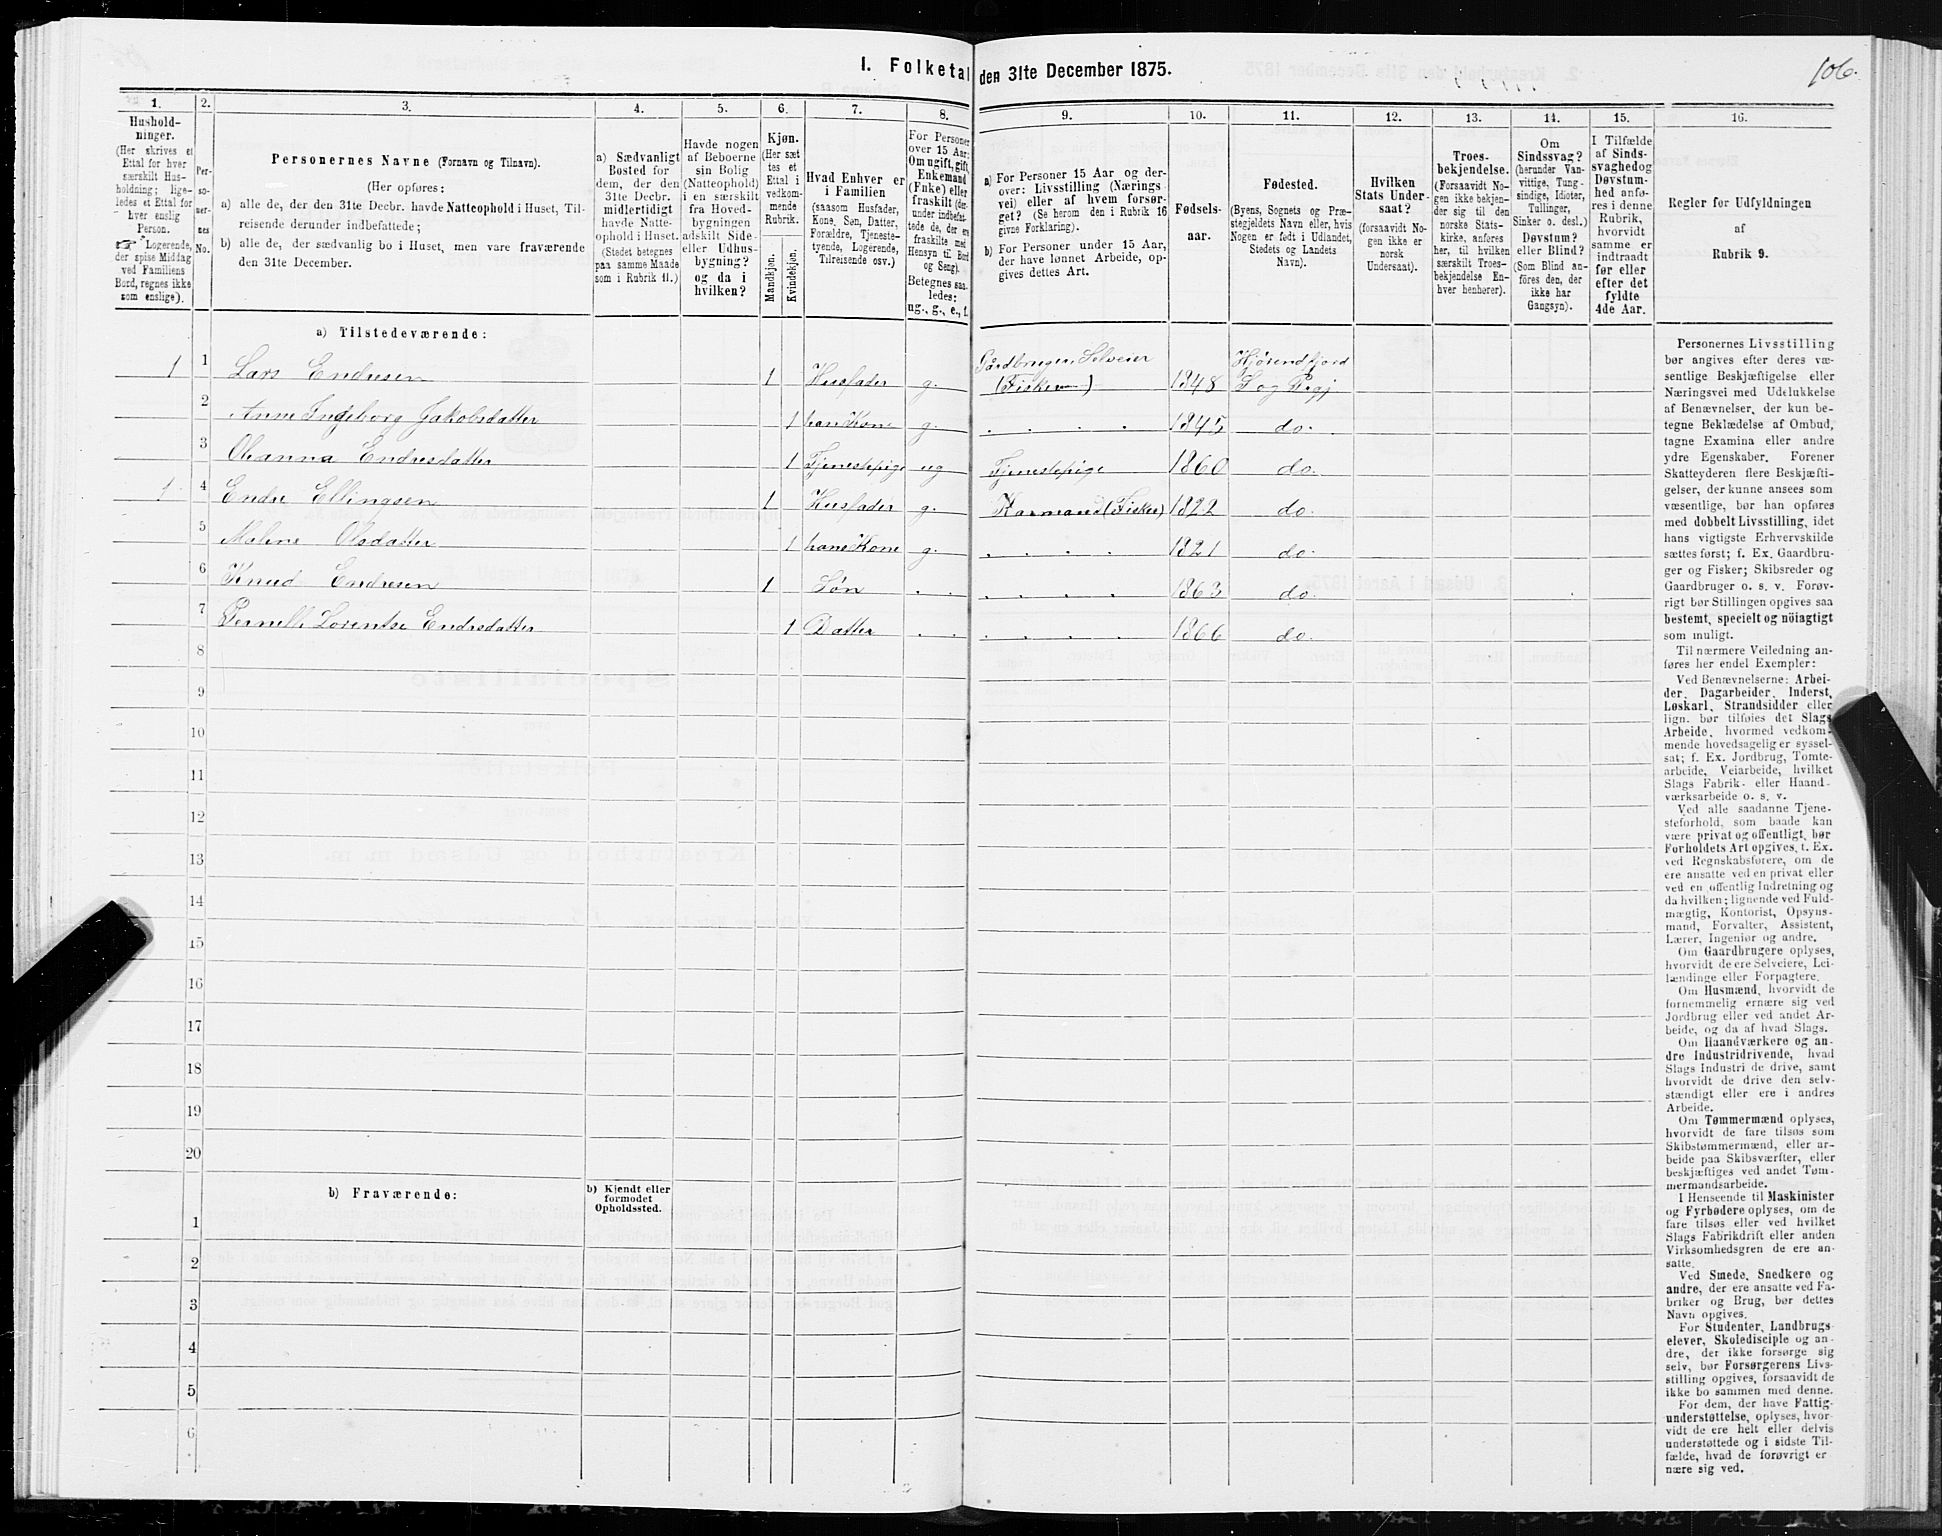 I. Folketal den 31te December 1875.
106.
1.
2.
3.
4.
5.
6.
7.
8.
9.
10.
11.
12.
13.
14.
15.
16.
Hushold-
ninger.
(Her skrives et
Ettal for hver
særskilt Hus-
holdning; lige-
ledes et Ettal for
hver enslig
Person.
☞ Logerende,
der spise Middag
ved Familiens
Bord, regnes ikke
som enslige).
Per-
so-
ner-
nes
No.
Personernes Navne (Fornavn og Tilnavn).
(Her opføres:
a) alle de, der den 31te Decbr. havde Natteophold i Huset, Til-
reisende derunder indbefattede;
b) alle de, der sædvanlig bo i Huset, men vare fraværende
den 31te December.
a) Sædvanligt
Bosted for
dem, der den
31te Decbr.
midlertidigt
havde Natte-
ophold i Huset.
(Stedet betegnes
paa samme Maade
som i Rubrik 11.)
Havde nogen
af Beboerne
sin Bolig
(Natteophold)
i en særskilt
fra Hoved-
bygningen
adskilt Side-
eller Udhus-
bygning?
og da i
hvilken?
Kjøn.
(Her sæt-
tes et
Ettal i
vedkom-
mende
Rubrik.
Mandkjøn.
Kvindekjøn.
Hvad Enhver er
i Familien
(saasom Husfader,
Kone, Søn, Datter,
Forældre, Tjeneste-
tyende, Logerende,
Tilreisende osv.)
For Personer
over 15 Aar:
Om ugift, gift,
Enkemand
(Enke) eller
fraskilt (der-
under indbefat-
tede de, der ere
fraskilte med
Hensyn til Bord
og Seng).
Betegnes saa-
ledes:
ug., g., e., f.
a) For Personer 15 Aar og der-
over: Livsstilling (Nærings-
vei) eller af hvem forsør-
get? (Se herom den i Rubrik 16
givne Forklaring).
b) For Personer under 15 Aar,
der have lønnet Arbeide, op-
gives dettes Art.
Fødsels-
aar.
Fødested.
(Byens, Sognets og Præ-
stegjeldets Navn eller, hvis
Nogen er født i Udlandet,
Stedets og Landets
Navn).
Hvilken
Stats Under-
saat?
(forsaavidt No-
gen ikke er
norsk
Undersaat).
Troes-
bekjendelse.
(Forsaavidt No-
gen ikke bekjen-
der sig til den
norske Stats-
kirke, anføres
her, til hvilken
særskilt Troes-
bekjendelse En-
hver henhører).
Om
Sindssvag?
(herunder Van-
vittige, Tung-
sindige, Idioter,
Tullinger,
Sinker o. desl.)
Døvstum?
eller Blind?
(Som Blind an-
føres den, der
ikke har
Gangsyn).
I Tilfælde
af Sinds-
svaghed og
Døvstum-
hed anfø-
res i denne
Rubrik,
hvorvidt
samme er
indtraadt
før eller
efter det
fyldte
4de Aar.
Regler for Udfyldningen
af
Rubrik 9.
a) Tilstedeværende:
1 1 Lars Endresen 1 Husfader g. Gårdbruger, Selveier (Fisker) 1848 Hjørendfjord S og Prgj
2 Anne Ingeborg Jakobsdatter 1 hans Kone g. 1845 do.
3 Olianna Endresdatter 1 Tjenestepige ug Tjenestepige 1860 do.
1 4 Endre Ellingsen 1 Husfader g. Kaarmand (Fisker) 1822 do
5 Malene Olsdatter 1 hans Kone g. 1821 do.
6 Knud Endresen 1 Søn 1863 do.
7 Pernelle Lorentse Endresdatter 1 Datter 1866 do.
8
9
10
11
12
13
14
15
16
17
18
19
20
b) Fraværende:
b) Kjendt eller
formodet
Opholdssted.
1
2
3
4
5
6
Personernes Livsstilling
bør angives efter deres væ-
sentlige Beskjæftigelse eller
Næringsvei med Udelukkelse
af Benævnelser, der kun be-
tegne Beklædelse af Ombud,
tagne Examina eller andre
ydre Egenskaber. Forener
Skatteyderen flere Beskjæfti-
gelser, der kunne ansees som
væsentlige, bør han opføres
med dobbelt Livsstilling, idet
hans vigtigste Erhvervskilde
sættes først; f. Ex. Gaardbru-
ger og Fisker; Skibsreder og
Gaardbruger o. s. v. Forøv-
rigt bør Stillingen opgives saa
bestemt, specielt og nöiagtigt
som muligt.
Til nærmere Veiledning an-
føres her endel Exempler:
Ved Benævnelserne: Arbei-
der, Dagarbeider, Inderst,
Løskarl, Strandsidder eller
lign. bør tilføies det Slags
Arbeide, hvormed vedkom-
mende hovedsagelig er syssel-
sat; f. Ex. Jordbrug, Tomte-
arbeide, Veiarbeide, hvilket
Slags Fabrik- eller Haand-
værksarbeide o. s. v.
Ved alle saadanne Tjene-
steforhold, som baade kan
være privat og offentligt, bør
Forholdets Art opgives, f. Ex.
ved Regnskabsførere, om de
ere ansatte ved en privat eller
ved en offentlig Indretning og
da hvilken; lignende ved Fuld-
mægtig, Kontorist, Opsyns-
mand, Forvalter, Assistent,
Lærer, Ingeniør og andre.
Om Gaardbrugere oplyses,
hvorvidt de ere Selveiere, Lei-
lændinge eller Forpagtere.
Om Husmænd, hvorvidt de
fornemmelig ernære sig ved
Jordbrug eller ved andet Ar-
beide, og da af hvad Slags.
Om Haandværkere og an-
dre Industridrivende, hvad
Slags Industri de drive, samt
hvorvidt de drive den selv-
stændigt eller ere i andres
Arbeide.
Om Tømmermænd oplyses,
hvorvidt de fare tilsøs som
Skibstømmermænd, eller ar-
beide paa Skibsværfter, eller
beskjæftiges ved andet Tøm-
mermandsarbeide.
I Henseende til Maskinister
og Fyrbødere oplyses, om de
fare tilsøs eller ved hvilket
Slags Fabrikdrift eller anden
Virksomhedsgren de ere an-
satte.
Ved Smede, Snedkere og
andre, der ere ansatte ved Fa-
briker og Brug, bør dettes
Navn opgives.
For Studenter, Landbrugs-
elever, Skoledisciple og an-
dre, der ikke forsørge sig
selv, bør Forsørgerens Livs-
stilling opgives, forsaavidt de
ikke bo sammen med denne.
For dem, der have Fattig-
understøttelse, oplyses, hvor-
vidt de ere helt eller delvis
understøttede og i sidste Til-
fælde, hvad de forøvrigt er-
nære sig ved.